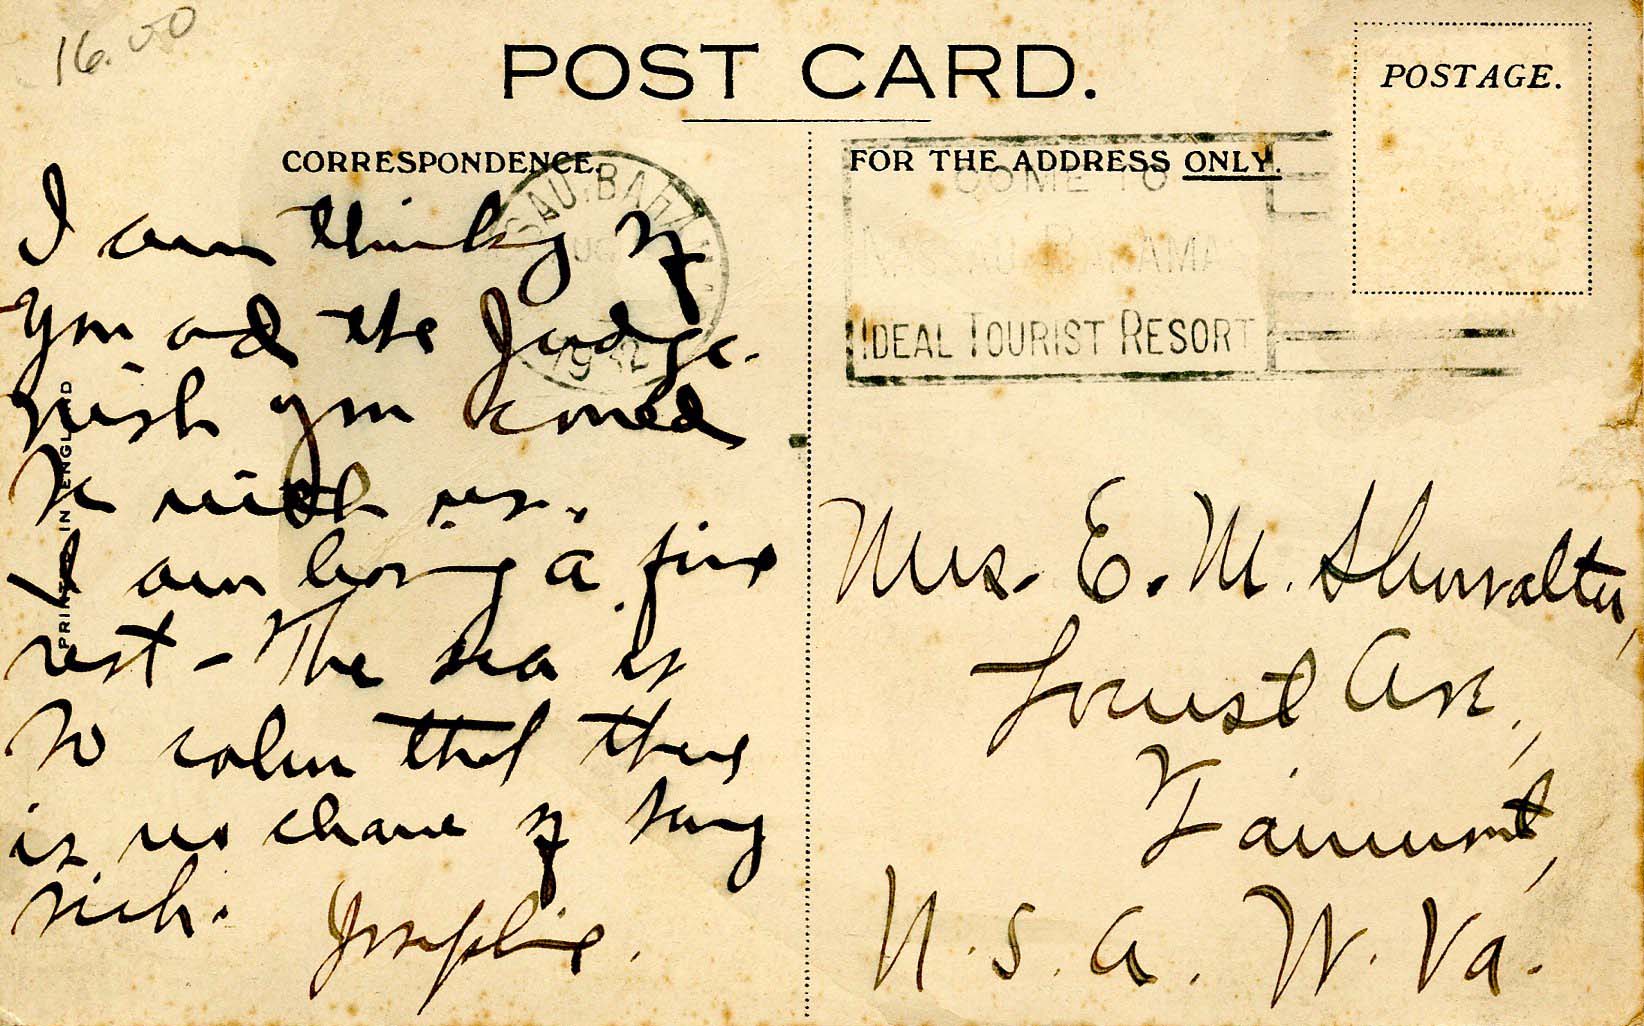 16.00
POST CARD.
POSTAGE.
CORRESPONDENCE.
FOR THE ADDRESS ONLY.
SAU. BAHA
1932
COME TO
NASSAU BAHAMA
IDEAL TOURIST RESORT
PRINTED IN ENGLAND
I am thinking of
you and the Judge.
Wish you could
be with us.
I am having a fine
rest - The sea is
so calm that there
is no chance of being
sick. Josephine.
Mrs. E. M. Showalter,
Locust Ave.,
Fairmont,
U.S.A. W. Va.